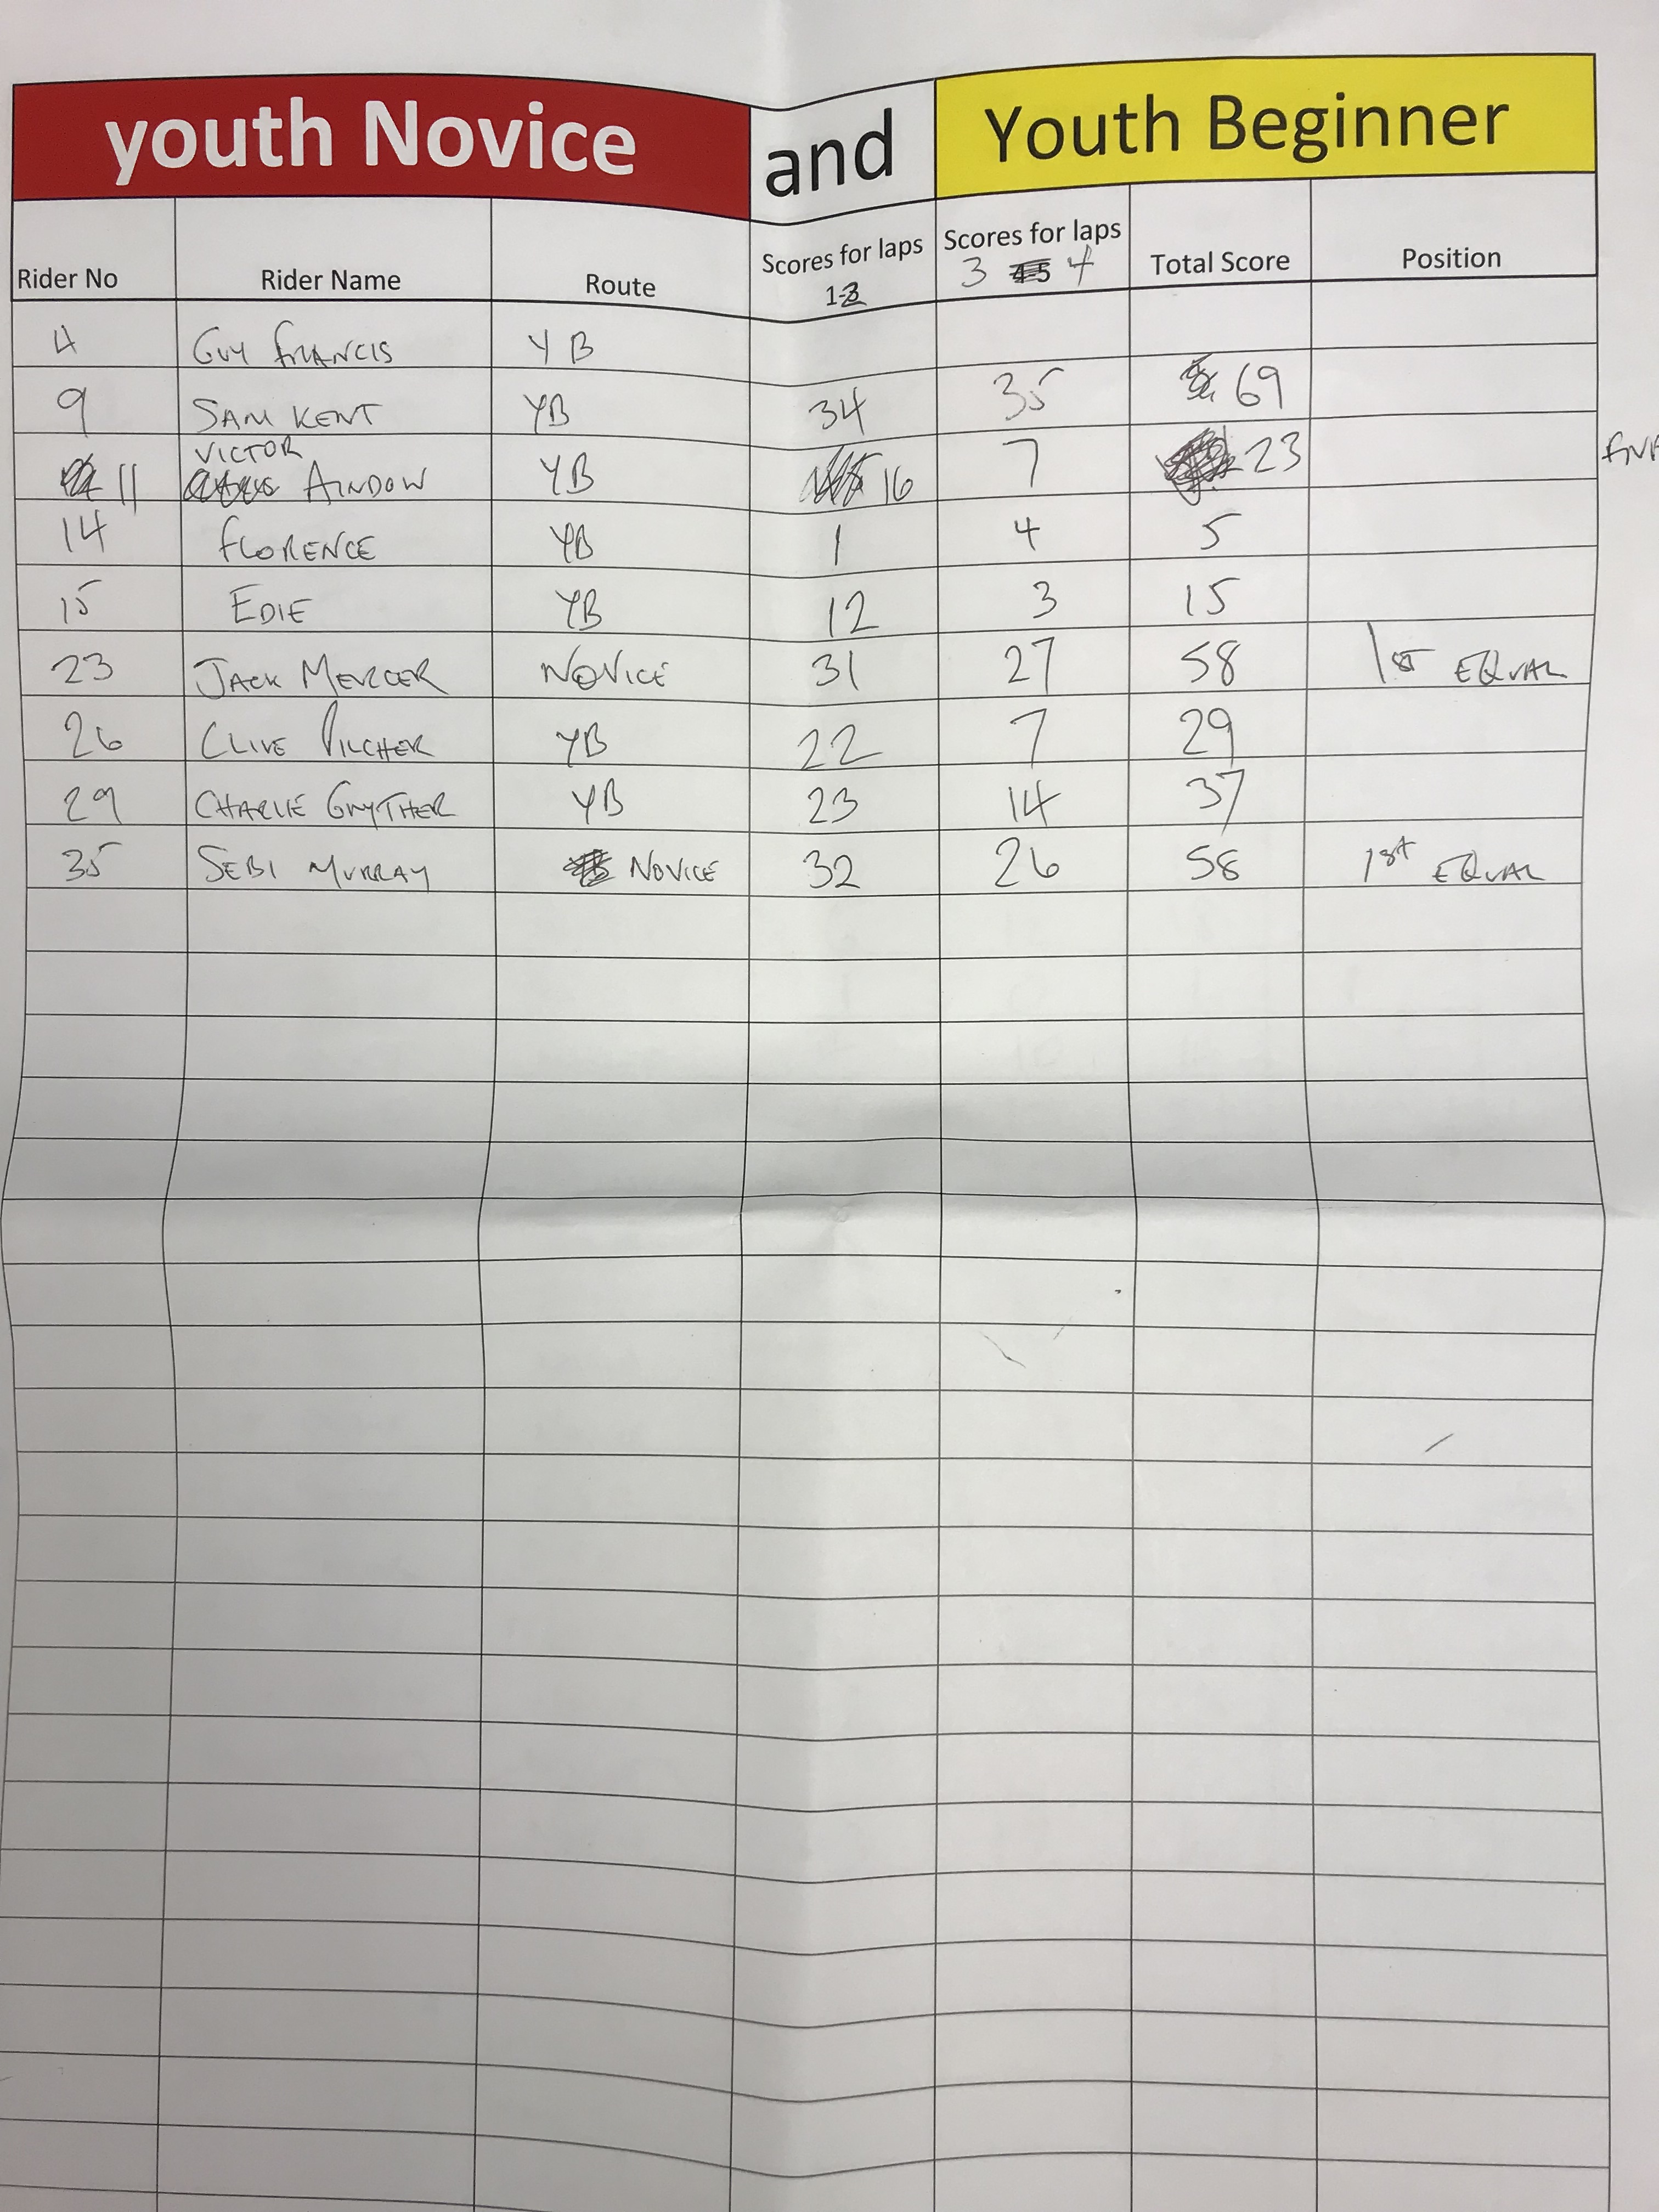 youth Novice and Youth Beginner
Rider No Rider Name Route Scores for laps 1-2 Scores for laps 3 4 Total Score Position
4 GUY FRANCIS YB
9 SAM KENT YB 34 35 69
11 VICTOR AINDOW YB 16 7 23
14 FLORENCE YB 1 4 5
15 EDIE YB 12 3 15
23 JACK MERCER NOVICE 31 27 58 1st EQUAL
26 CLIVE PILCHER YB 22 7 29
29 CHARLIE GWYTHER YB 23 14 37
35 SEBI MURRAY NOVICE 32 26 58 1st EQUAL